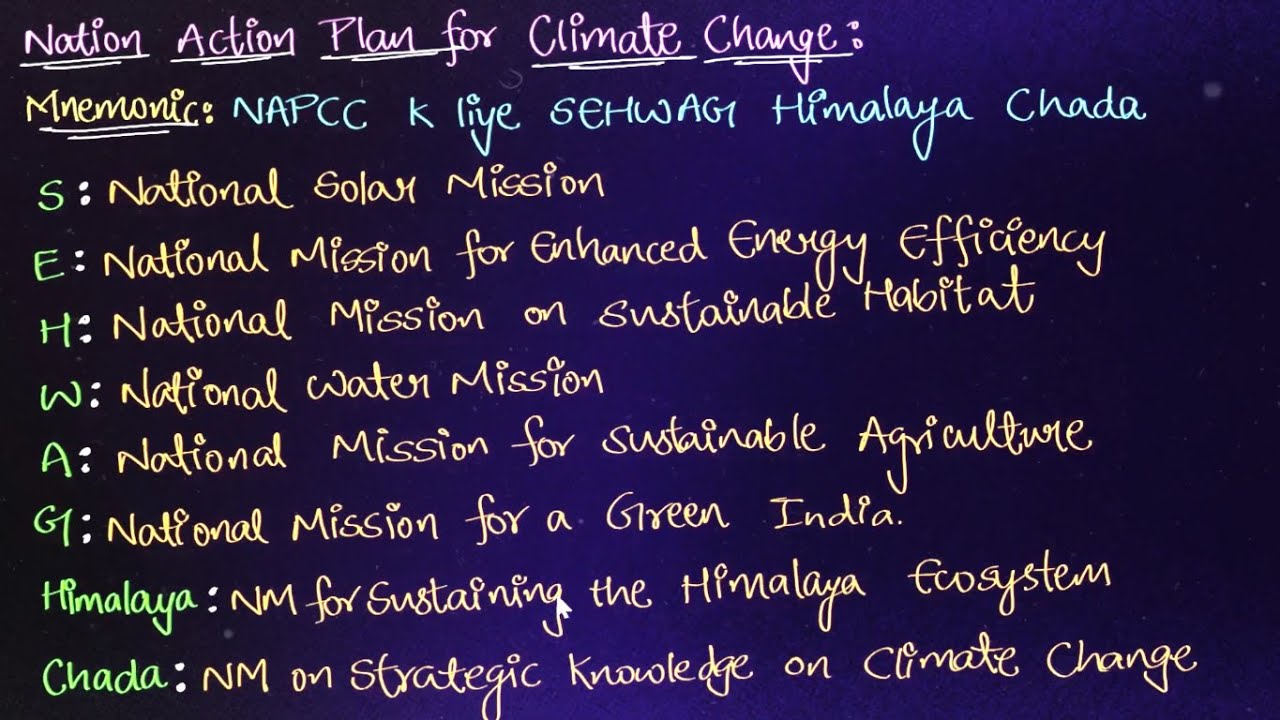 Nation Action Plan for Climate Change:
Mnemonic: NAPCC K liye SEHWAG Himalaya Chada
S: National Solar Mission
E: National Mission for Enhanced Energy Efficiency
H: National Mission on Sustainable Habitat
W: National Water Mission
A: National Mission for Sustainable Agriculture
G: National Mission for a Green India.
Himalaya: NM for Sustaining the Himalaya Ecosystem
Chada: NM on Strategic Knowledge on Climate Change